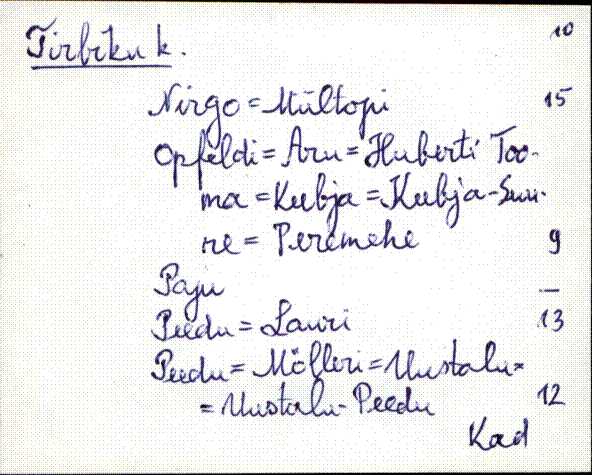 Tirbiku k. 10
Nirgo = Mültopi 15
Opfeldi = Aru = Huberti Too-
ma = Kubja = Kubja-Suu-
re = Peremehe 9
Paju —
Peedu = Lauri 13
Peedu = Mölleri = Uustalu =
= Uustalu-Peedu 12
Kad